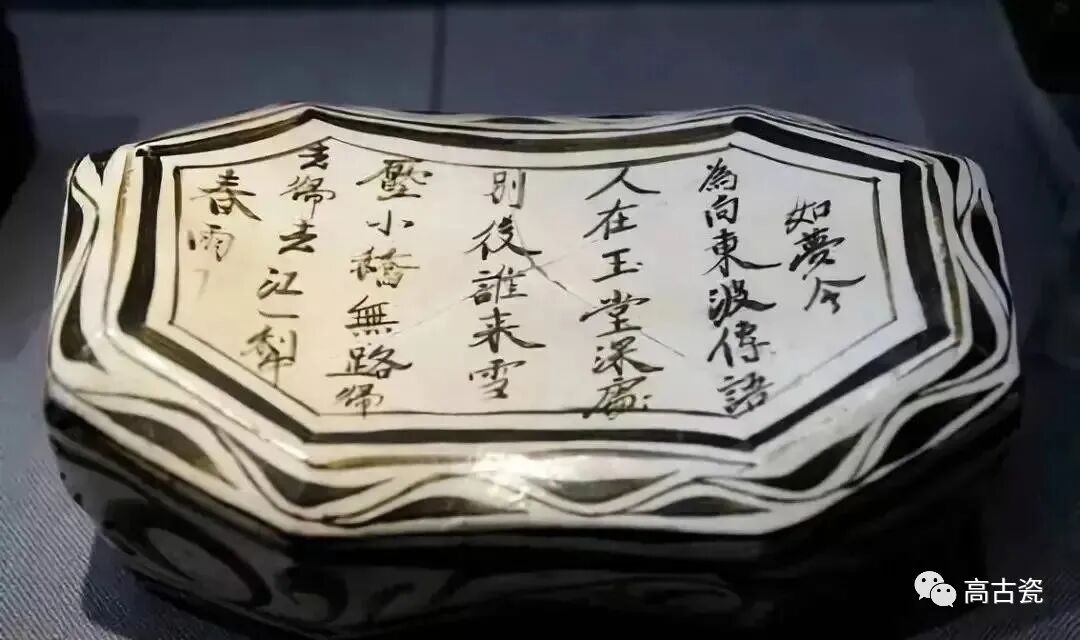 如夢令
為向東波傳語
人在玉堂深處
別後誰来雪
壓小橋無路歸
去歸去江一犁
春雨
高古瓷